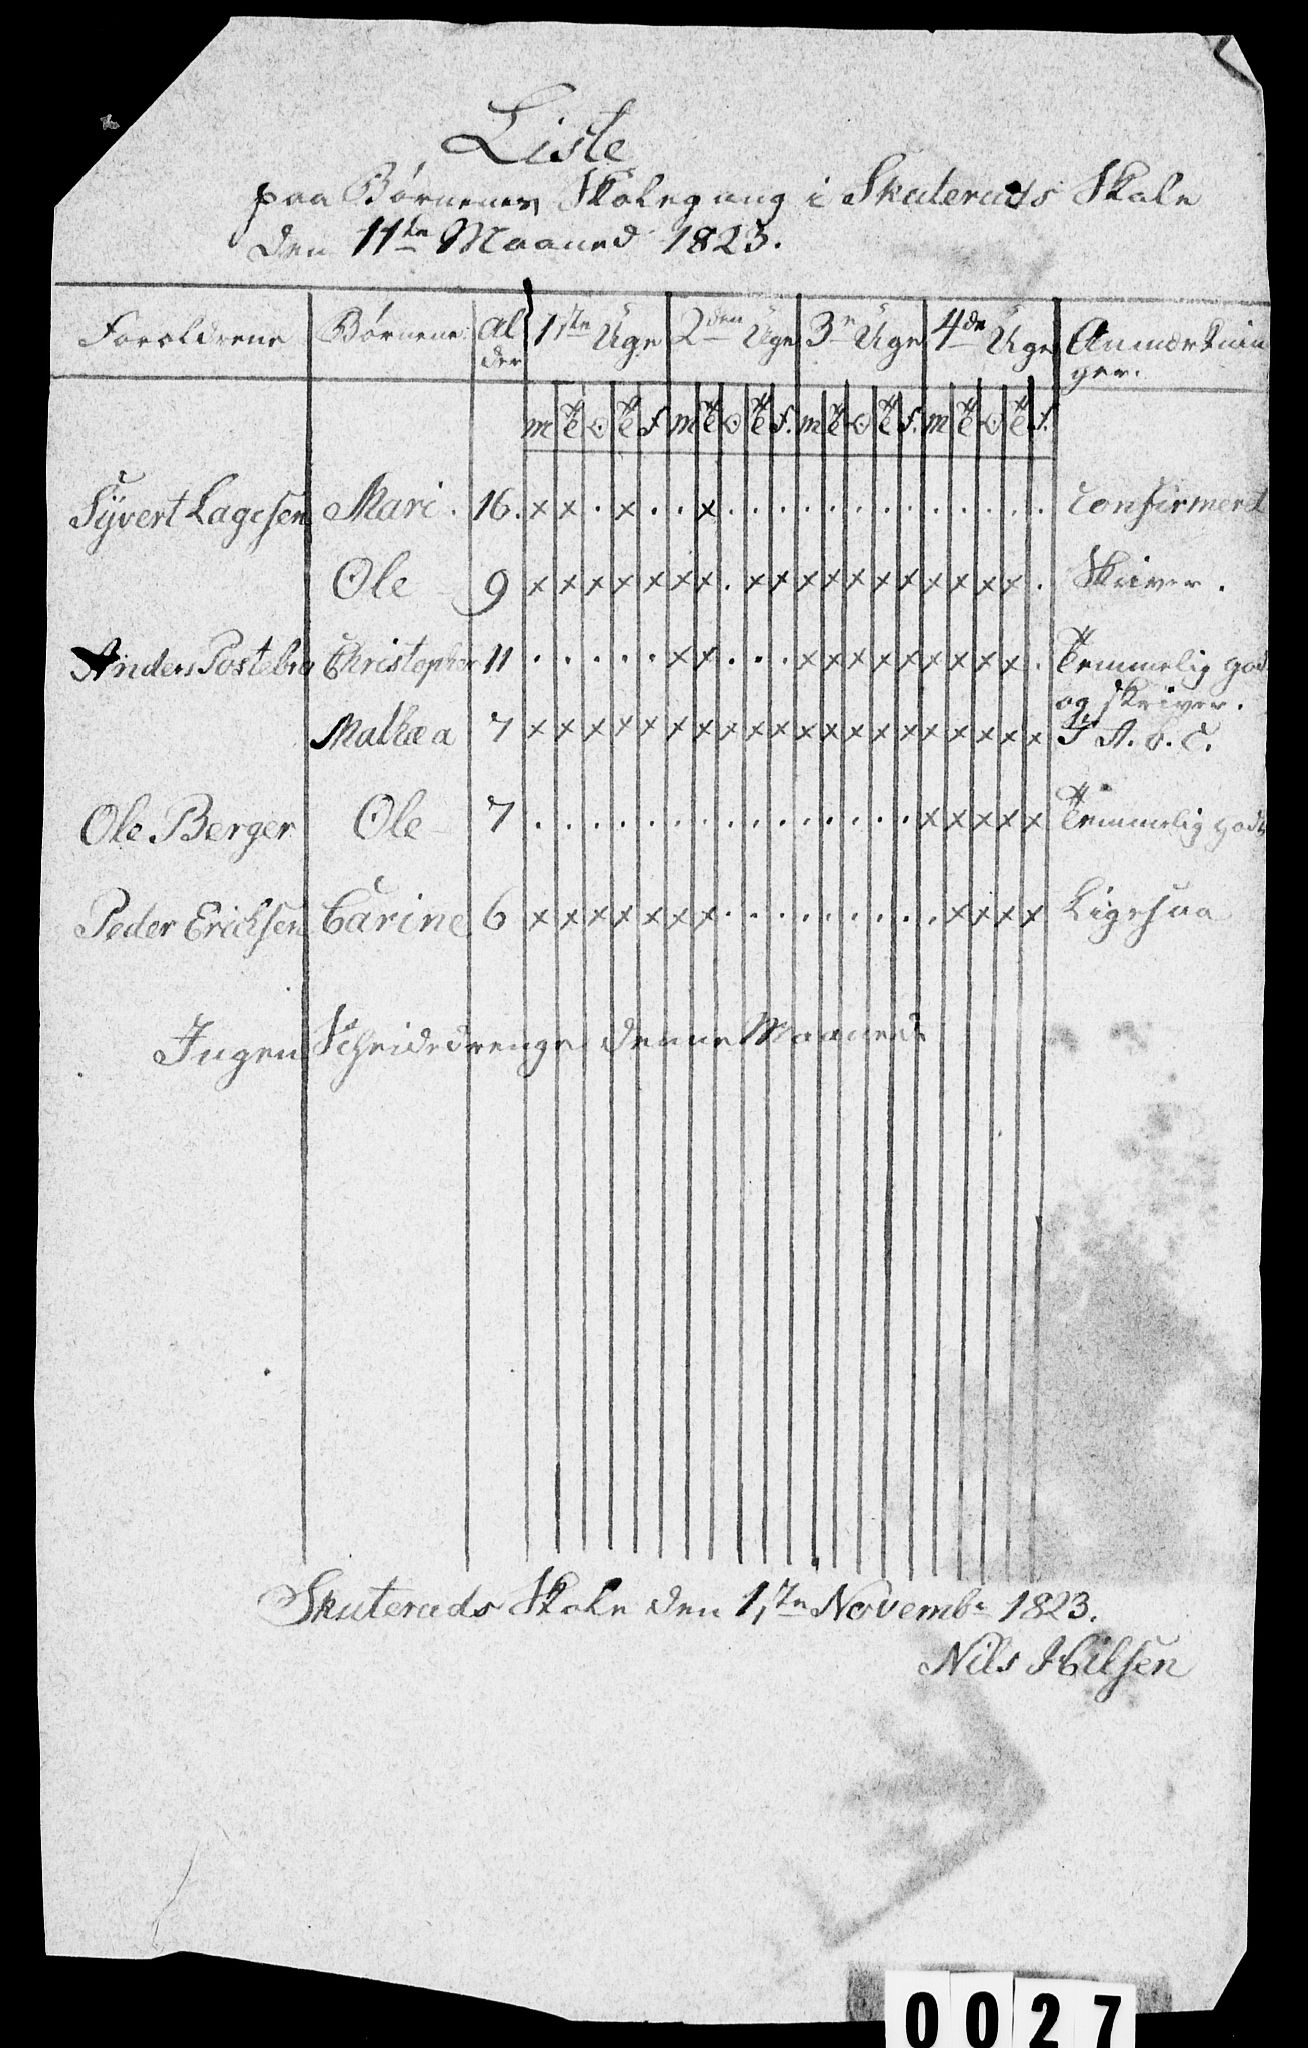 Liste
paa Børnenes Skolegang i Skuteruds Skole
den 11te Maaned 1823.
Foreldrene Børnene Al 1ste Uge 2den Uge 3e Uge 4de Uge Anmærknin
der ger.
m T O T f m T O T f. m T O T f. m T O T f.
Syvert Lagesen Mari. 16. x x . x . . x . . . . . . . . . . . . . Confirmert
Ole 9 x x x x x x x . x x x x x x x x x x x . Skriver.
Anders Postebro Christopher 11 . . . . . x x . . . x x x x x x x x x . Temmelig god
og skriver.
Mathea 7 x x x x x x x x x x x x x x x x x x x x I A. b. c.
Ole Berger Ole 7 . . . . . . . . . . . . . . . x x x x x Temmelig godt
Peder Erichsen Carine 6 x x x x x x x . . . . . . . . . x x x x Ligesaa
Ingen Scheidedrenge denne Maaned
Skuteruds Skole den 1,te Novembr 1823.
Nils Nilsen
0027